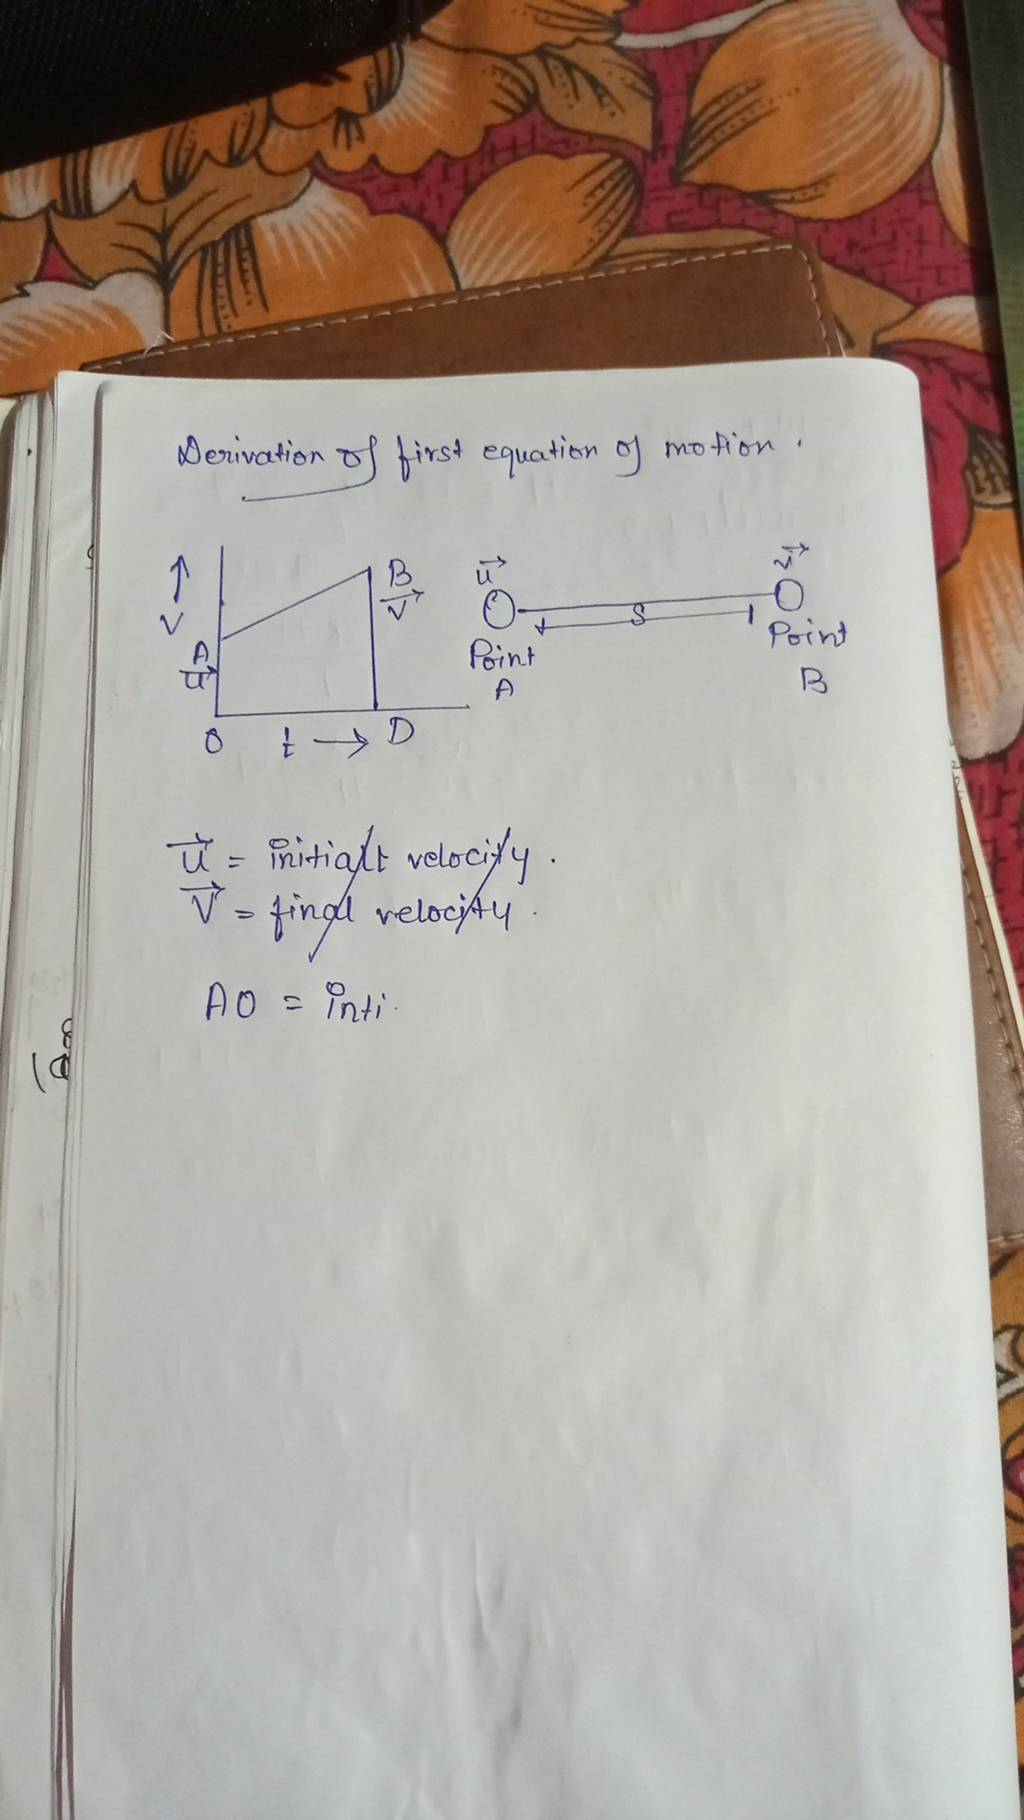 Derivation of first equation of motion.
V
A
u
B
V
O
t
D
u
Point
A
S
v
Point
B
u = initialt velocity.
V = final velocity.
AO = inti.